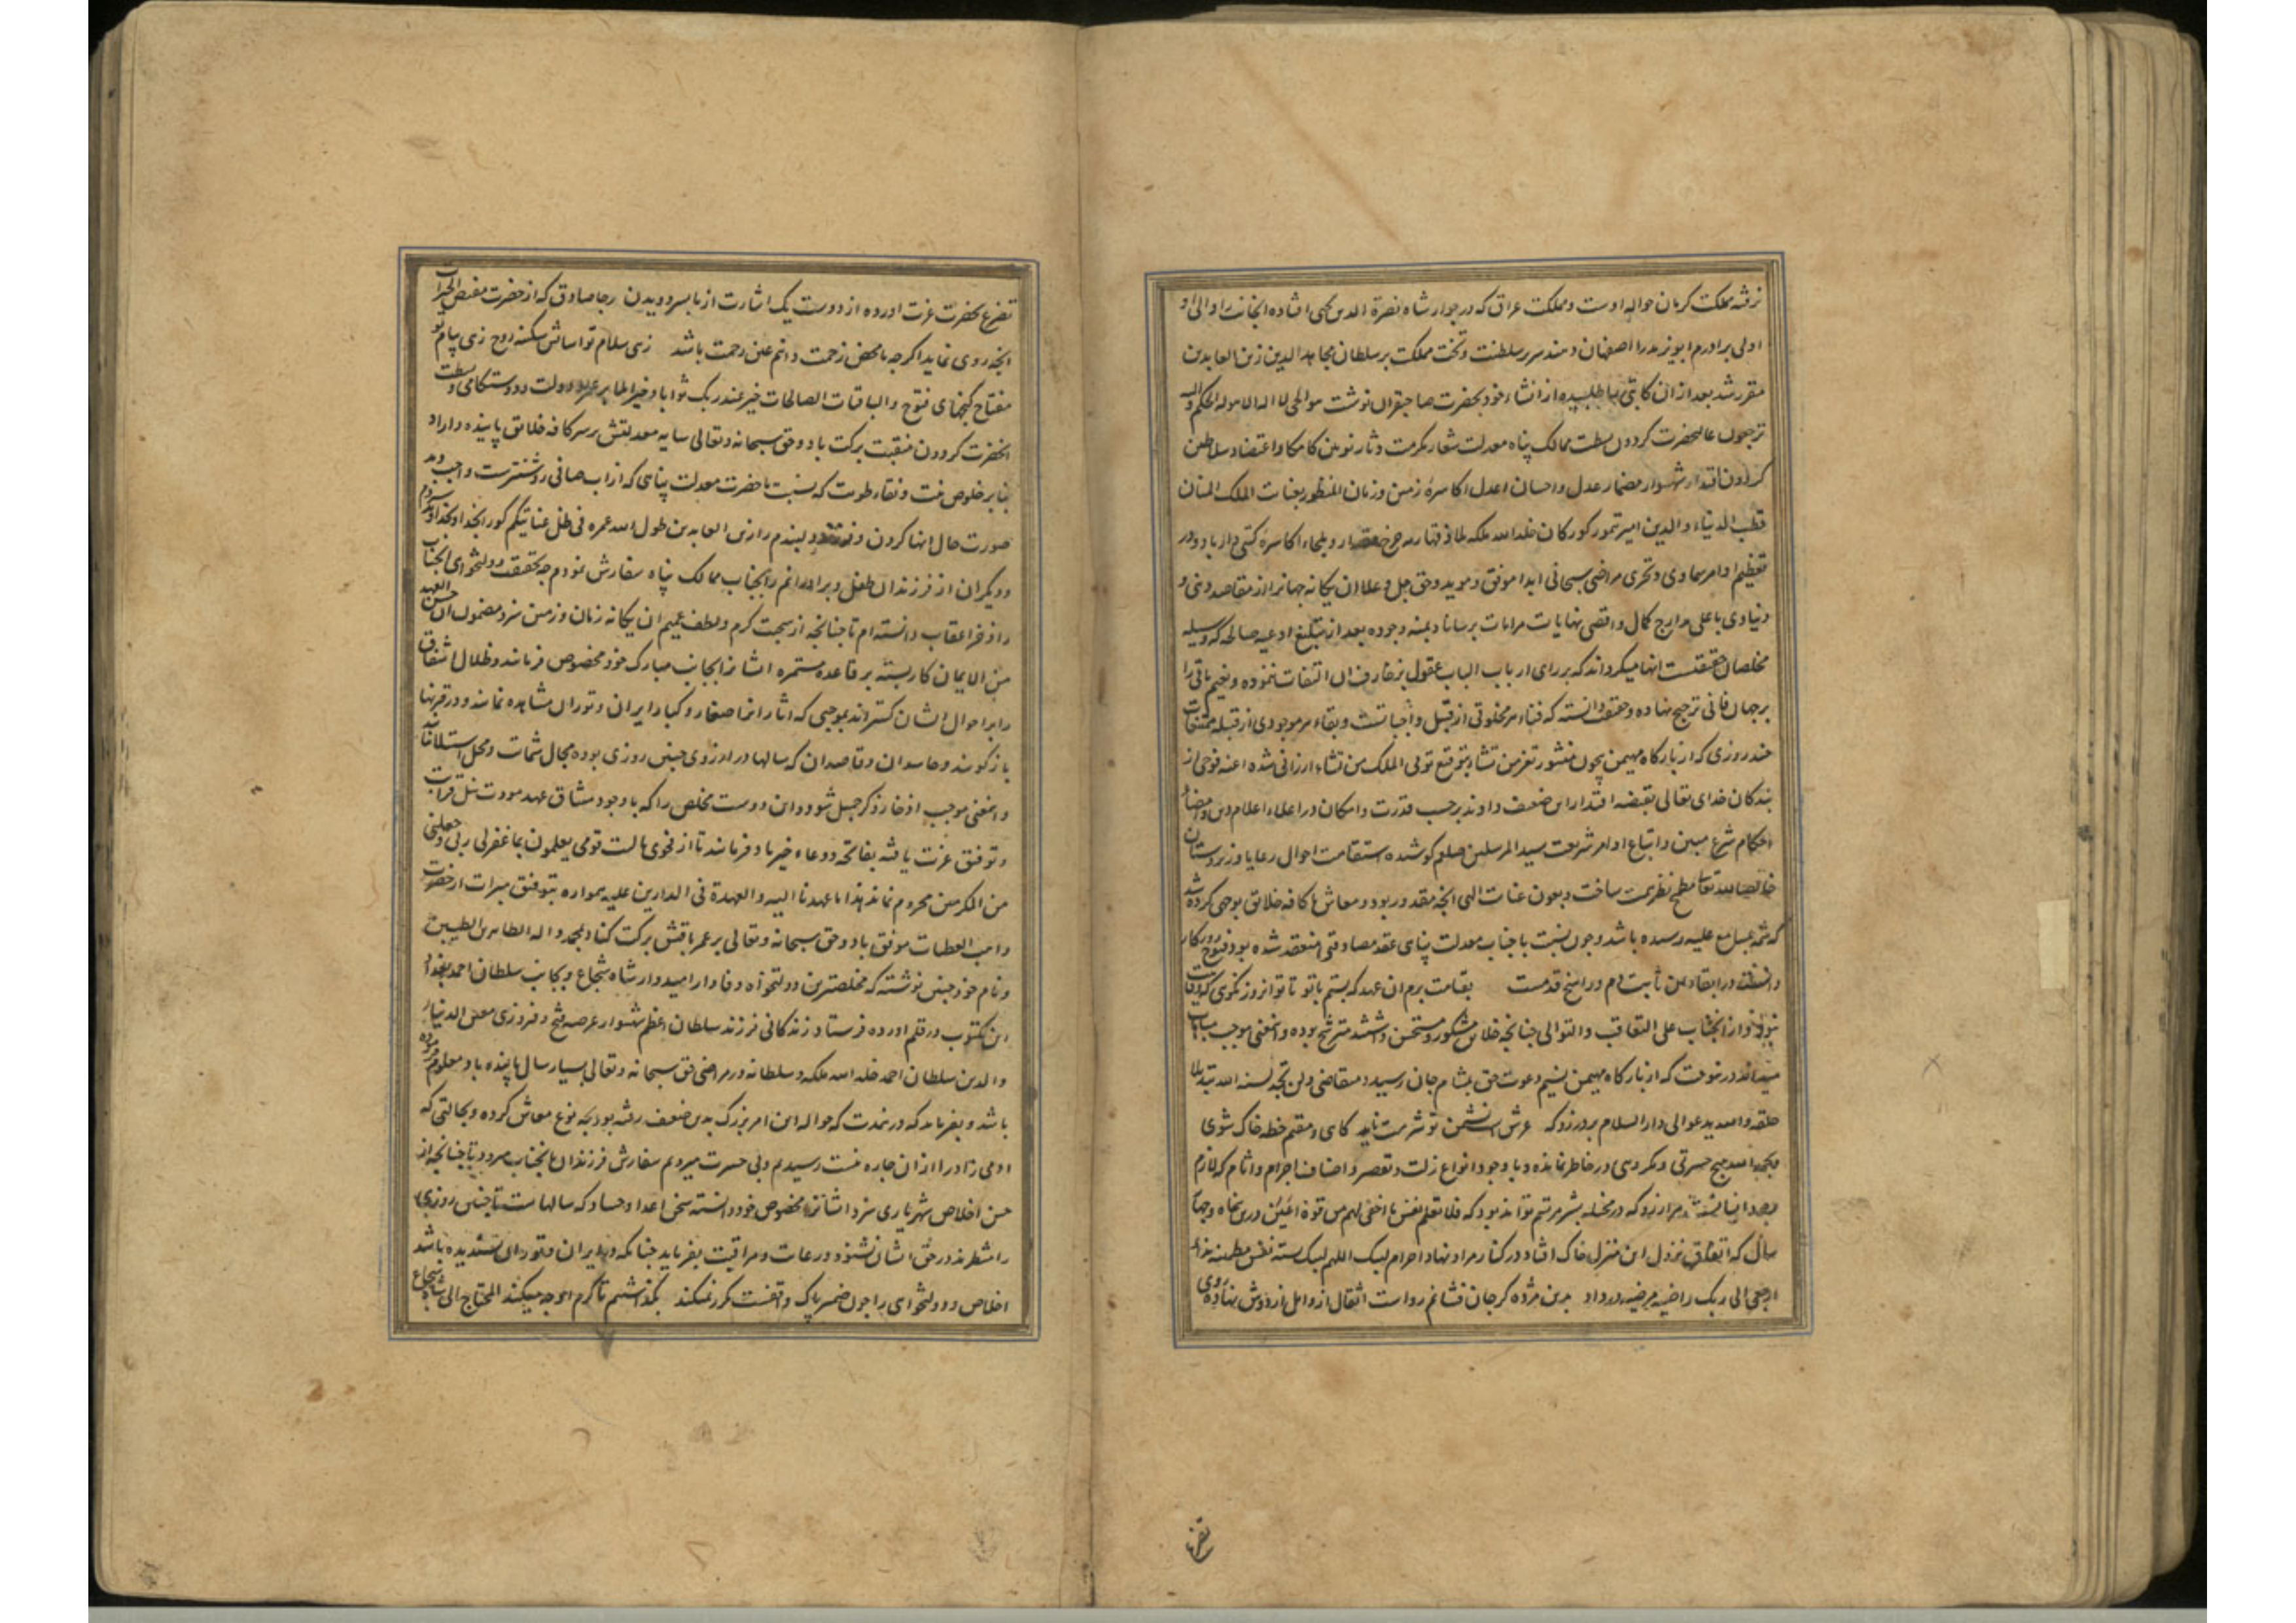 نرفته مملکت کرمان حواله اوست و مملکت عراق که در جوار شاه نصرة الدین یحیی افتاده
اولی برادرم ابویزید را اصفهان و مسند سریر سلطنت و تخت مملکت بر سلطان مجاهد الدین زین العابدین
مقرر شد بعد ازان کاتبی طلبیده از انشاء خود بحضرت صاحبقران نوشت هو الحی لا اله الا هو له الحکم و الیه
ترجعون عالیحضرت کردون بسطت ممالک پناه معدلت شعار مکرمت دثار نوین کامکار اعتضاد سلاطین
کردون اقتدار شهسوار مضمار عدل و احسان اعدل اکاسرهٔ زمین و زمان المنظور بعنایت الملک المنان
قطب الدنیاء و الدین امیر تیمور کورکان خلد الله ملکه ملاذ قیاصره و ملجاء اکاسرهٔ کیتی دار باد و در
تعظیم اوامر سماوی و تحری مراضی سبحانی ابدا موفق و موید و حق جل و علا ان یکانه جهانرا از مقاصد دینی و
دنیاوی باعلی مدارج کمال و اقصی نهایات مرامات برساناد بمنه و جوده بعد از تبلیغ ادعیه صالحه که وسیله
مخلصان حقیقتست انها میکرداند که بر رای ارباب الباب عقول بزخارف ان التفات ننموده و نعیم باقی را
بر جهان فانی ترجیح نهاده و حقیقت دانسته که فناء هر مخلوقی از قبیل واجباتست و بقاء هر موجودی از قبیله ممتنعات
چند روزی که از بارکاه مهیمن بیچون منشور تعز من تشاء بتوقیع توتی الملک من تشاء ارزانی شده اعنه فوجی از
بندکان خدای تعالی بقبضه اقتدار این ضعیف دادند برحسب قدرت و امکان در اعلاء اعلام دین و امضاء
احکام شرع مبین و اتباع اوامر شریعت سید المرسلین صلعم کوشیده استقامت احوال رعایا و زیردستان
خالصا لله تعالی مطمح نظر همت ساخت و بعون عنایت الهی انچه مقدور بود و معاش با کافه خلایق بوجهی کرده شد
که شمه بمسامع علیه رسیده باشد و چون نسبت با جناب معدلت پناهی عقد مصادقتی منعقد شده بود فتوح روزکار
دانسته در ابقاء ان ثابت دم و راسخ قدمست بقیامت برم ان عهد که بستم با تو تا تو انروز نکوی که
و از انجناب علی التعاقب و التوالی چنانچه خلایق مشکور و مستحسن داشتند مترشح بوده و انمعنی موجب مباهات
میدانند درینوقت که از بارکاه مهیمن نسیم دعوت حق بمشام جان رسید و متقاضی و لن تجد لسنة الله تبدیلا
حلقه و الله یدعو الی دار السلام بر در زد که عرش است نشیمن تو شرمت ناید کایی و مقیم خطه خاک شوی
بحمد الله هیچ حسرتی و مکروهی در خاطر نمانده و با وجود انواع زلت و تقصیر و اصناف اجرام و اثام که لازم
وجود انسانیست هر ارزو که در مخیله بشر مرتسم تواند بود که فلا تعلم نفس ما اخفی لهم من قرة اعین درین پنجاه و
سال که اتفاق نزول این منزل خاک افتاد در کنار مراد نهاد احرام لبیک اللهم لبیک بسته نفس مطمئنه ندای
ارجعی الی ربک راضیه مرضیه در داد بدین مژده کر جان فشانم رواست اثقال از و امل از دوش نهاده
تضرع
تضرع بحضرت عزت اورده از دوست یک اشارت از ما بسر دویدن رجا صادق که از حضرت مفیض الخیرات
انچه روی نماید اکرچه ما محض زحمت دانیم عین رحمت باشد زهی سلام تو اسایش سکینه روح زهی پیام تو
مفتاح کنجهای فتوح و الباقیات الصالحات خیر عند ربک ثوابا و خیر املا بر عمر و دولت و دوستکامی و بسطت
انحضرت کردون منقبت برکت باد و حق سبحانه و تعالی سایه معدلتش بر سر کافه خلایق پاینده داراد
بنابر خلوص نیت و نقاء طویت که نسبت با حضرت معدلت پناهی که از اب صافی روشنترست واجب دید
صورت حال انها کردن و فرزند دلبندم را زین العابدین طول الله عمره فی ظل عنایتکم کورا بخدا و بخداوند سپردم
و دیکران از فرزندان طفل و برادرانم را بجناب ممالک پناه سفارش نمودم چه بحقیقت دولتخواهی انجناب
را ذخر اعقاب دانسته ام تا چنانچه از سجیت کرم و لطف عمیم ان یکانه زمان و زمین سزد مضمون ان حسن العهد
من الایمان کار بسته بر قاعده مستمره ایشانرا بجانب مبارک خود مخصوص فرمایند و ظلال اشفاق
را بر احوال ایشان کسترانند بموجبی که اثار انرا صغار و کبار ایران و توران مشاهده نمایند و در قرنها
باز کویند و حاسدان و قاصدان که سالها در ارزوی چنین روزی بوده مجال شماتت و محل استیلا نیابند
و انمعنی موجب ادخار ذکر جمیل شود و این دوست مخلص را که با وجود میثاق عهد مودت نیل قرابت
و توفیق عزت یافته بفاتحه و دعاء خیر یاد فرمایند تا از فحوی یا لیت قومی یعلمون بما غفر لی ربی و جعلنی
من المکرمین محروم نماند هذا ما عهدنا الیه و العهدة فی الدارین علیه همواره بتوفیق مبرات از حضرت
واهب العطیات موفق باد و حق سبحانه و تعالی بر عمر باقیش برکت کناد بمحمد و اله الطاهرین الطیبین
و نام خود چنین نوشته که مخلصترین دولتخواه وفادار امیدوار شاه شجاع و بجانب سلطان احمد بغداد
این مکتوب در قلم اورده فرستاد زندکانی فرزند سلطان اعظم شهسوار عرصه فتح و فیروزی معین الدنیاء
و الدین سلطان احمد خلد الله ملکه و سلطانه در مراضی حق سبحانه و تعالی بسیار سال پاینده باد معلوم فرموده
باشد و بفرماید که درین مدت که حواله این امر بزرک بدین ضعیف رفته بود بچه نوع معاش کرده و بحالتی که
ادمی زاد را از ان چاره نیست رسیدیم و بی حسرت میرویم سفارش فرزندان بانجناب میرود تا چنانچه از
حسن اخلاص شهریاری سزد ایشانرا مخصوص خود دانسته سخن اعدا و حساد که سالهاست تا چنین روزی
را منتظرند در حق ایشان نشنود و رعایت و مراقبت بفرماید چنانکه در ایران و توران پسندیده باشد
اخلاص و دولتخواهی را چون ضمیر پاک واقفست مکرر نمیکند بکذاشتیم تا کرم او چه میکند المحتاج الی الله شاه شجاع